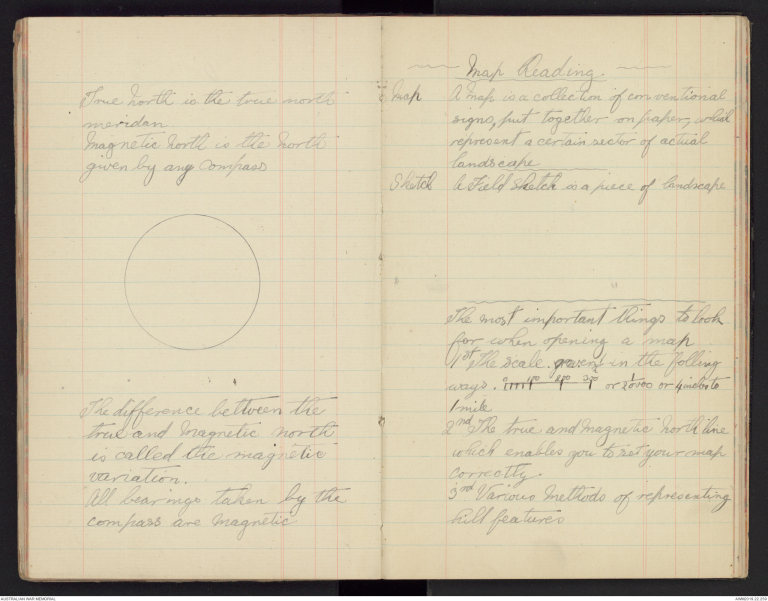 True North is the true north
meridan
Magnetic North is the North
given by any Compass
The difference between the
true and Magnetic north
is called the magnetic
variation.
All bearings taken by the
compass are Magnetic
Map Reading.
Map A Map is a collection of conventional
signs, put together on paper, which
represent a certain sector of actual
landscape
Sketch A Field Sketch is a piece of landscape
The most important things to look
for when opening a map
1st The scale. given in the folling
ways. 0 100 200 300 or 1/20000 or 4 inches to
1 mile
2nd The true and Magnetic North line
which enables you to set your map
correctly.
3rd Various Methods of representing
hill features
AUSTRALIAN WAR MEMORIAL